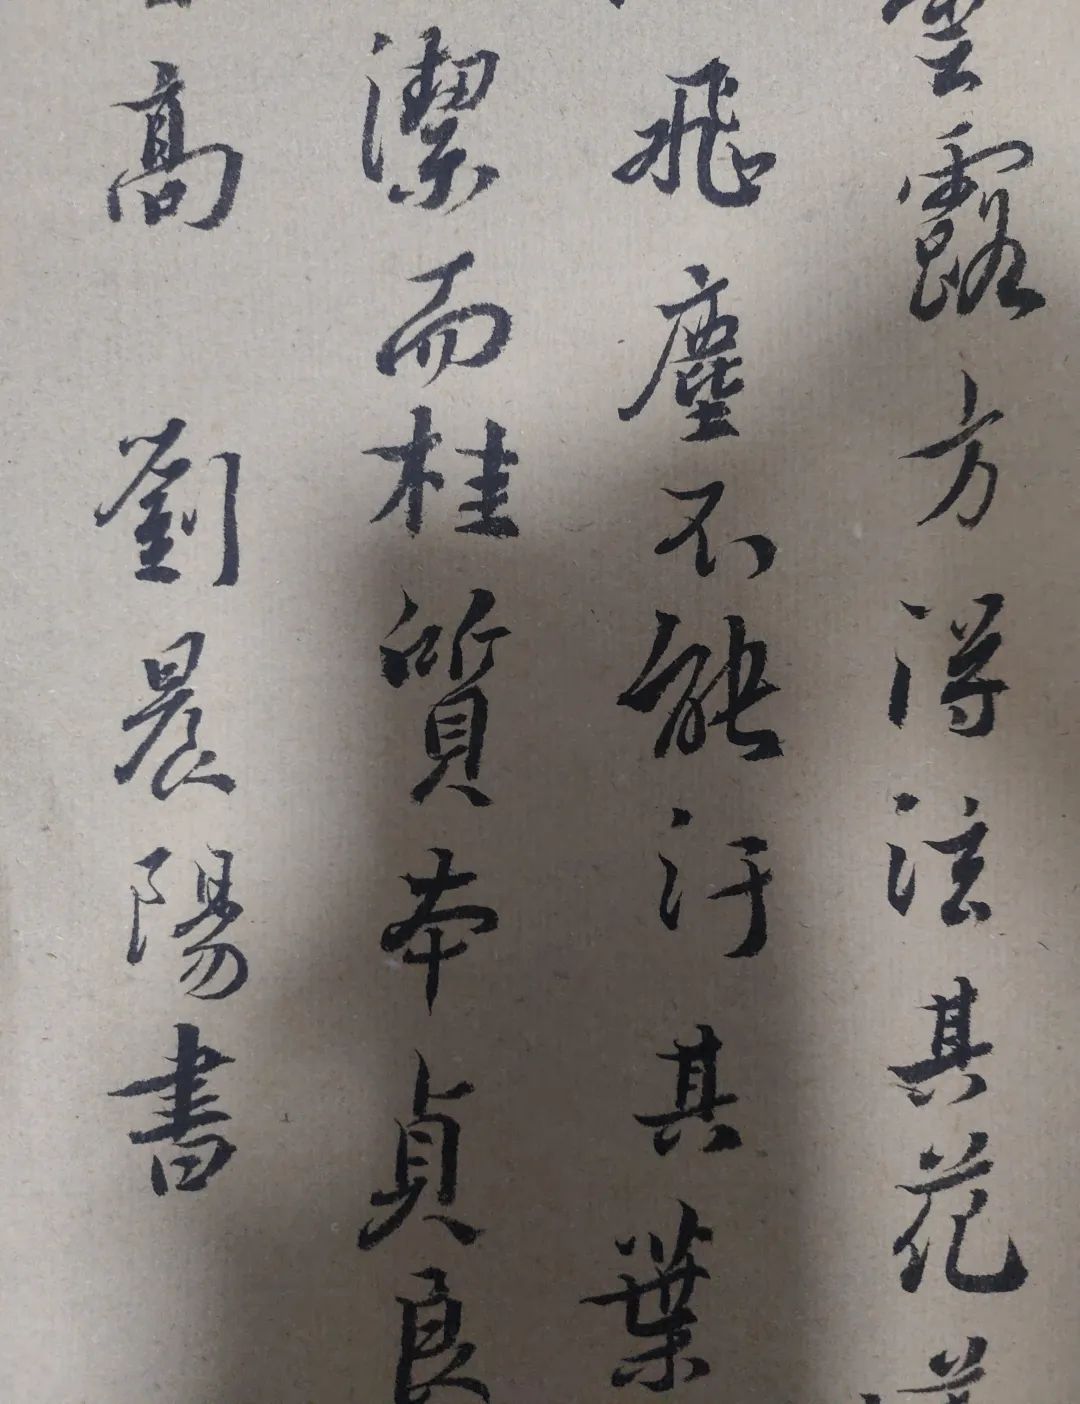 露方得泫其花
飛塵不能汙其葉
潔而桂質本貞良
高 劉晨陽書